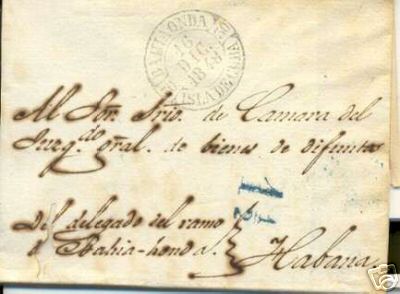 BAHIA HONDA
16
DIC
1848
ISLA DE CUBA
Al Sor. Srio. de Camara del
Juzg.do gral. de bienes de difuntos
Del delegado del ramo
Bahia-honda.
Habana